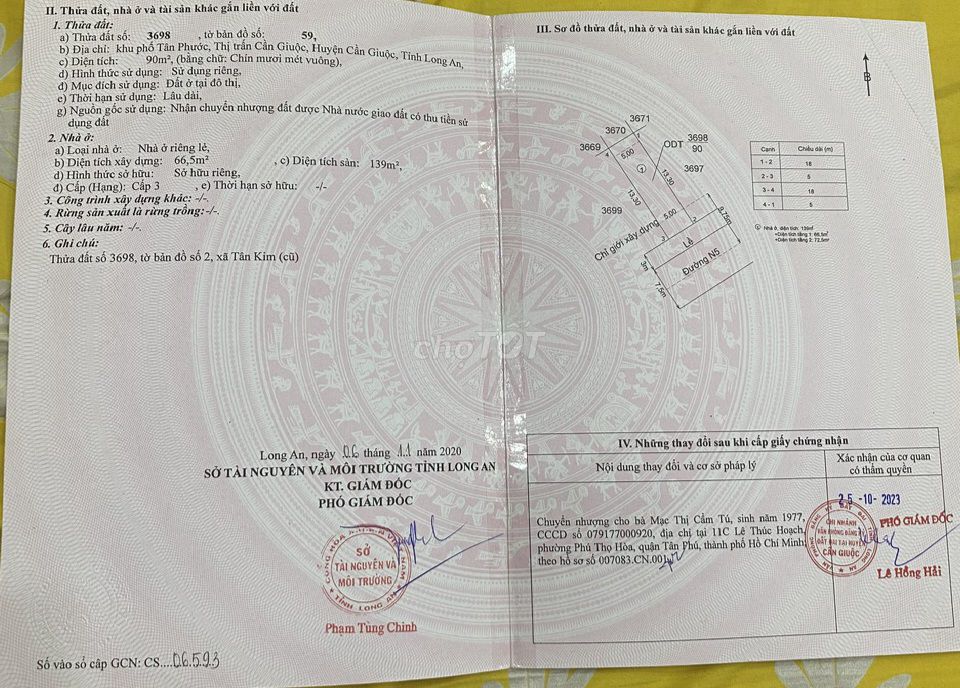 II. Thửa đất, nhà ở và tài sản khác gắn liền với đất
1. Thửa đất:
a) Thửa đất số: 3698 , tờ bản đồ số: 59,
b) Địa chỉ: khu phố Tân Phước, Thị trấn Cần Giuộc, Huyện Cần Giuộc, Tỉnh Long An,
c) Diện tích: 90m², (bằng chữ: Chín mươi mét vuông),
d) Hình thức sử dụng: Sử dụng riêng,
đ) Mục đích sử dụng: Đất ở tại đô thị,
e) Thời hạn sử dụng: Lâu dài,
g) Nguồn gốc sử dụng: Nhận chuyển nhượng đất được Nhà nước giao đất có thu tiền sử
dụng đất
2. Nhà ở:
a) Loại nhà ở: Nhà ở riêng lẻ,
b) Diện tích xây dựng: 66,5m² , c) Diện tích sàn: 139m²,
d) Hình thức sở hữu: Sở hữu riêng,
đ) Cấp (Hạng): Cấp 3 , e) Thời hạn sở hữu: -/-
3. Công trình xây dựng khác: -/-.
4. Rừng sản xuất là rừng trồng:-/-.
5. Cây lâu năm: -/-.
6. Ghi chú:
Thửa đất số 3698, tờ bản đồ số 2, xã Tân Kim (cũ)
Long An, ngày 06 tháng 11 năm 2020
SỞ TÀI NGUYÊN VÀ MÔI TRƯỜNG TỈNH LONG AN
KT. GIÁM ĐỐC
PHÓ GIÁM ĐỐC
SỞ
TÀI NGUYÊN VÀ
MÔI TRƯỜNG
TỈNH LONG AN
Phạm Tùng Chinh
Số vào sổ cấp GCN: CS....06593
III. Sơ đồ thửa đất, nhà ở và tài sản khác gắn liền với đất
B
3671
3670
3669
3698
ODT 90
3697
3699
1
2
3
4
1
5,00
13,30
13,30
5,00
9,75m
Chỉ giới xây dựng
Lề
Đường N5
3m
7,5m
Cạnh Chiều dài (m)
1 - 2 18
2 - 3 5
3 - 4 18
4 - 1 5
① Nhà ở, diện tích: 139m²
+Diện tích tầng 1: 66,5m²
+Diện tích tầng 2: 72,5m²
chợTỐT
IV. Những thay đổi sau khi cấp giấy chứng nhận
Nội dung thay đổi và cơ sở pháp lý
Xác nhận của cơ quan
có thẩm quyền
Chuyển nhượng cho bà Mạc Thị Cẩm Tú, sinh năm 1977,
CCCD số 079177000920, địa chỉ tại 11C Lê Thúc Hoạch,
phường Phú Thọ Hòa, quận Tân Phú, thành phố Hồ Chí Minh;
theo hồ sơ số 007083.CN.001
25 -10- 2023
PHÓ GIÁM ĐỐC
CHI NHÁNH
VĂN PHÒNG ĐĂNG KÝ
ĐẤT ĐAI TẠI HUYỆN
CẦN GIUỘC
Lê Hồng Hải